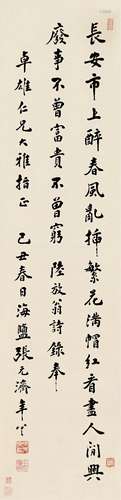 長安市上醉春風亂插繁花滿帽紅看盡人間興
廢事不曾富貴不曾窮 陸放翁詩錄奉
卓雄仁兄大雅指正 己丑春日海鹽張元濟年